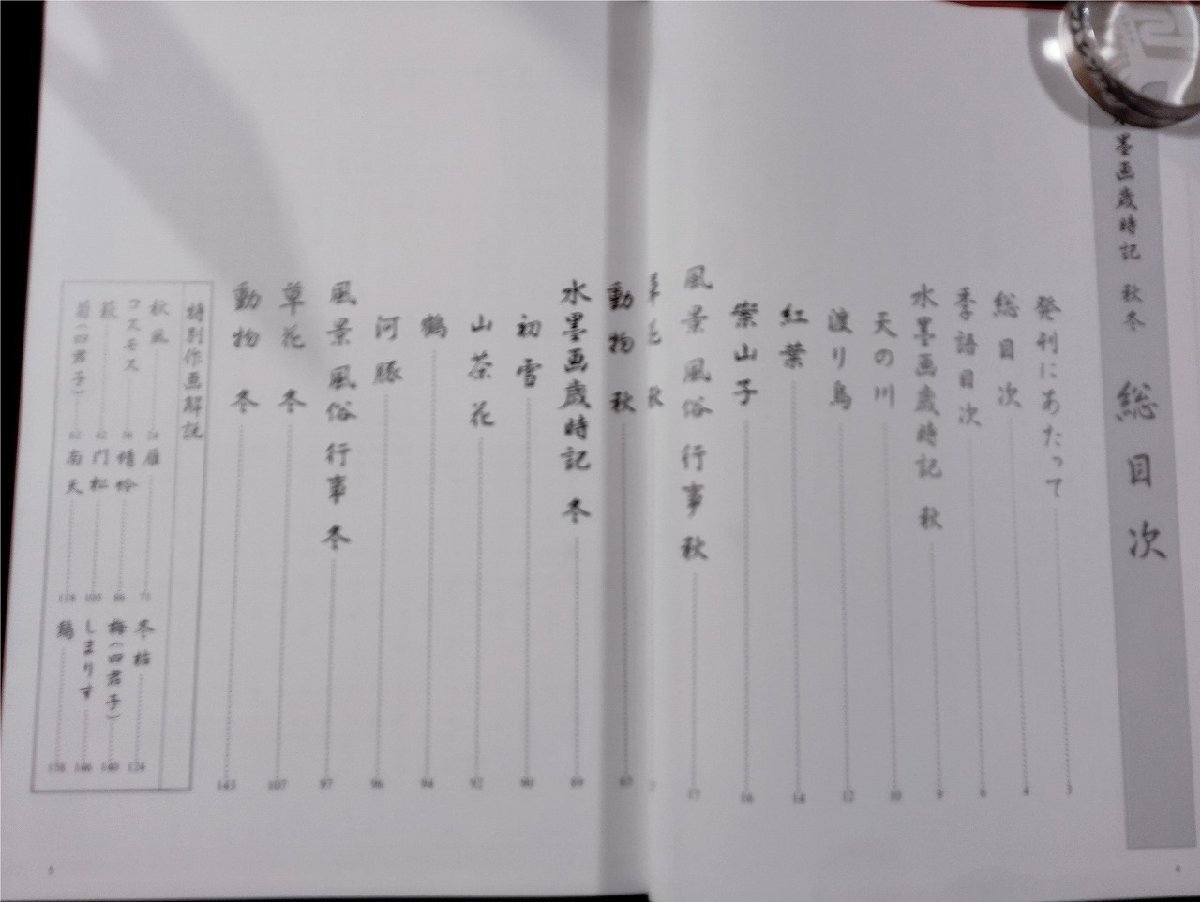 墨画歳時記 秋冬 総目次
発刊にあたって 3
総目次 4
季語目次 6
水墨画歳時記 秋 9
天の川 10
渡り鳥 12
紅葉 14
案山子 16
風景 風俗 行事 秋 17
動物 秋
水墨画歳時記 冬 89
初雪 90
山茶花 92
鶴 94
河豚 96
風景 風俗 行事 冬 97
草花 冬 107
動物 冬 143
特別作画解説
秋風
コスモス
萩
菊(四君子)
雁
蜻蛉
門松
南天
冬枯
梅(四君子)
しまりす
4
5